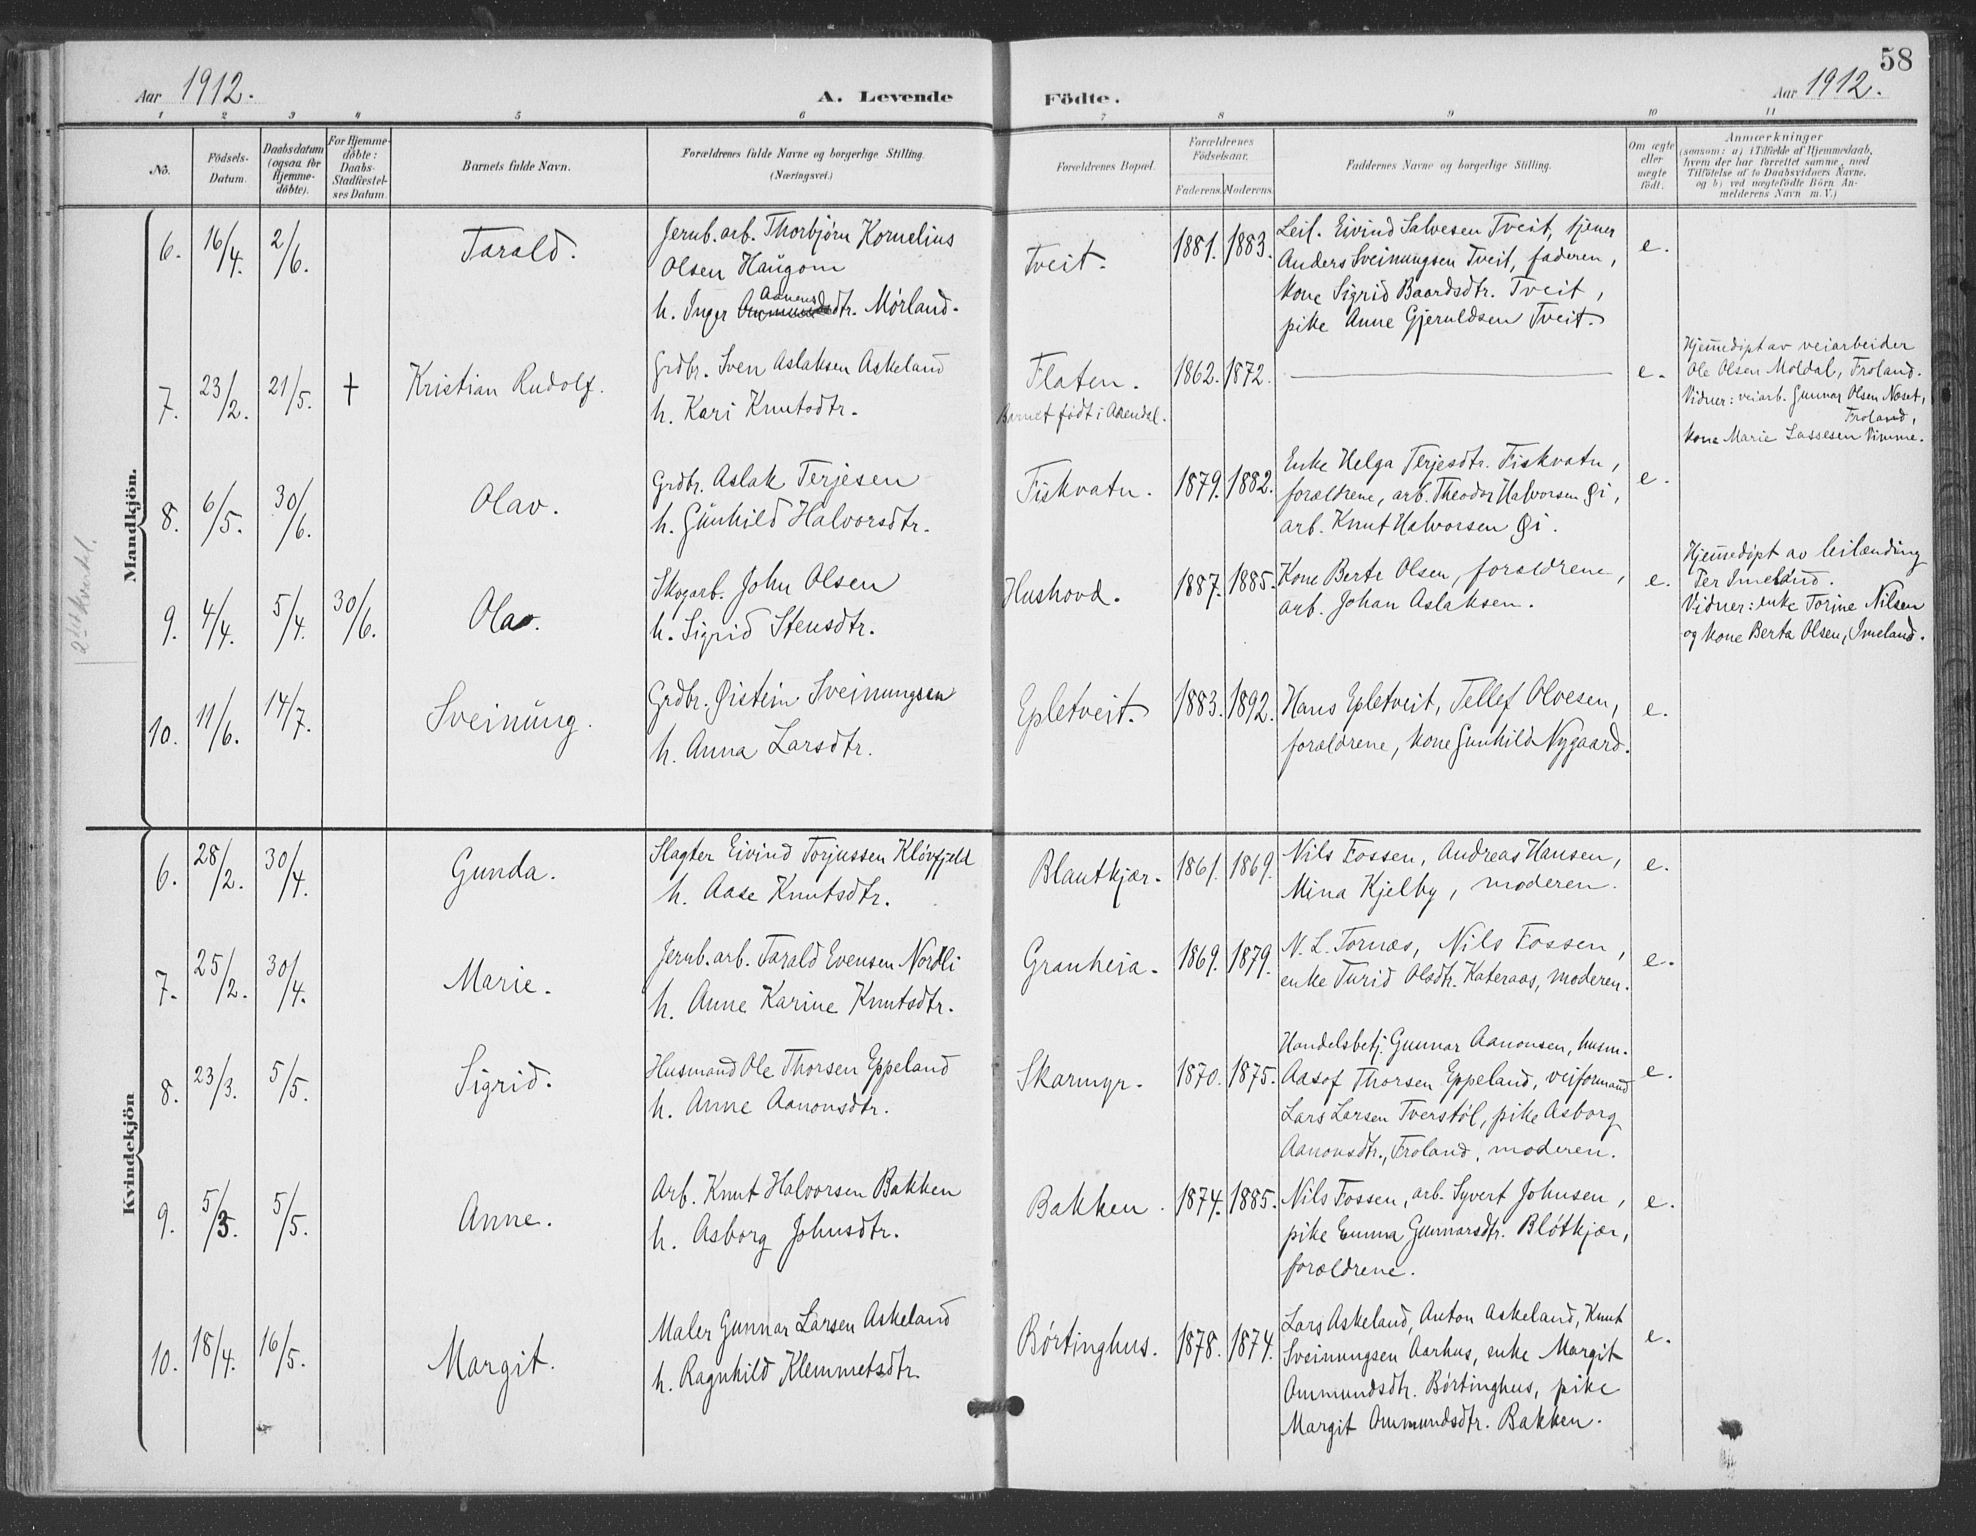 58
Aar 1912.
A. Levende
Födte.
Aar 1912.
1 2 3 4 5 6 7 8 9 10 11
No.
Födsels-
Datum.
Daabsdatum
(ogsaa for
Hjemme-
döbte).
For Hjemme-
döbte:
Daabs-
Stadfæstel-
ses Datum.
Barnets fulde Navn.
Forældrenes fulde Navne og borgerlige Stilling.
(Næringsvei.)
Forældrenes Bopæl.
Forældrenes
Födselsaar.
Faderens. Moderens.
Faddernes Navne og borgerlige Stilling.
Om ægte
eller
uægte
födt.
Anmærkninger
(saasom: a) i Tilfælde af Hjemmedaab,
hvem der har forrettet samme, med
Tilföielse af to Daabsvidners Navne,
og b) ved uægtefödte Börn An-
melderens Navn m. V.)
Mandkjön.
2det kvartal.
6. 16/4. 2/6. Tarald.
Jernb. arb. Thorbjørn Kornelius
Olsen Haugom
Aanens
h. Inger Ommundsdtr. Mørland.
Tveit. 1881. 1883.
Leil. Eivind Salvesen Tveit, tjener
Anders Sveinungsen Tveit, faderen,
kone Sigrid Baardsdtr. Tveit,
pike Anne Gjeruldsen Tveit.
e.
7. 23/2. 21/5. † Kristian Rudolf.
Grdbr. Sven Aslaksen Askeland
h. Kari Knutsdtr.
Flaten.
Barnet født i Arendal.
1862. 1872. e.
Hjemmedøpt av veiarbeider
Ole Olsen Moldal, Froland.
Vidner: veiarb. Gunnar Olsen Næset,
Froland,
kone Marie Lassesen Vimme.
8. 6/5. 30/6. Olav.
Grdbr. Aslak Terjesen
h. Gunhild Halvorsdtr.
Fiskvatn. 1879. 1882.
Enke Helga Terjesdtr. Fiskvatn,
forældrene, arb. Theodor Halvorsen Øi,
arb. Knut Halvorsen Øi.
e.
9. 4/4. 5/4. 30/6. Olav.
Skogarb. John Olsen
h. Sigrid Stensdtr.
Hushovd. 1887. 1885.
Kone Berte Olsen, forældrene,
arb. Johan Aslaksen.
e.
Hjemmedøpt av leilænding
Ter Imeland.
Vidner: enke Torine Nilsen
og kone Berta Olsen, Imeland.
10. 11/6. 14/7. Sveinung.
Grdbr. Øistein Sveinungsen
h. Anna Larsdtr.
Epletveit. 1883. 1892.
Hans Epletveit, Tellef Olvesen,
forældrene, kone Gunhild Nygaard.
e.
Kvindekjön
6. 28/2. 30/4. Gunda.
Slagter Eivind Torjussen Kløvfjeld
h. Aase Knutsdtr.
Blautkjær. 1861. 1869.
Nils Fossen, Andreas Hansen,
Mina Kjelby, moderen.
e.
7. 25/2. 30/4. Marie.
Jernb. arb. Tarald Evensen Nordli
h. Anne Karine Knutsdtr.
Granheia. 1869. 1879.
N. L. Tornæs, Nils Fossen,
enke Turid Olsdtr. Kateraas, moderen.
e.
8. 23/3. 5/5. Sigrid.
Husmand Ole Thorsen Eppeland
h. Anne Aanonsdtr.
Skarmyr. 1870. 1875.
Handelsbetj. Gunnar Aanonsen, husm.
Aasof Thorsen Eppeland, veiformand
Lars Larsen Tverstøl, pike Asborg
Aanonsdtr., Froland, moderen.
e.
9. 5/3. 5/5. Anne.
Arb. Knut Halvorsen Bakken
h. Asborg Johnsdtr.
Bakken. 1874. 1885.
Nils Fossen, arb. Syvert Johnsen,
pike Emma Gunnarsdtr. Bløtkjær,
forældrene.
e.
10. 18/4. 16/5. Margit.
Maler Gunnar Larsen Askeland
h. Ragnhild Klemmetsdtr.
Børtinghus. 1878. 1874.
Lars Askeland, Anton Askeland, Knut
Sveinungsen Aarhus, enke Margit
Ommundsdtr. Børtinghus, pike
Margit Ommundsdtr. Bakken.
e.